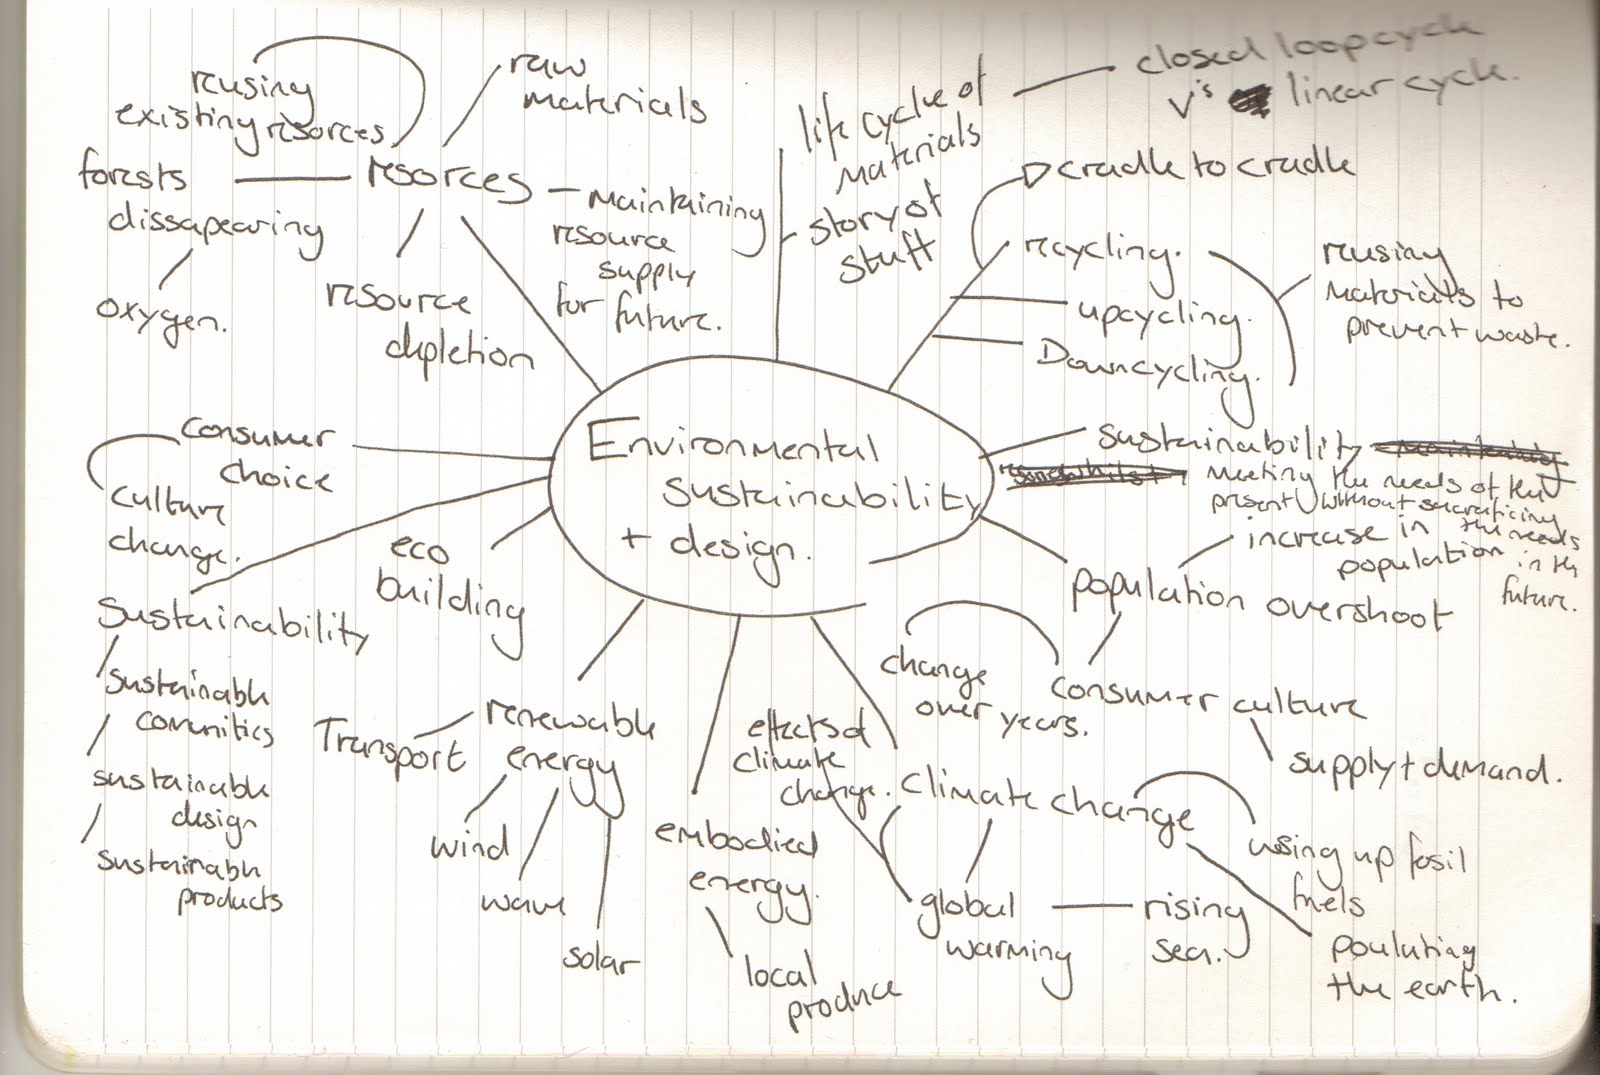 reusing
existing risorces
raw
materials
resorces
forests
dissapearing
oxygen.
resource
depletion
maintaining
resource
supply
for future.
life cyclle of
materials
closed loop cycle
v's linear cycle.
story of
stuff
cradle to cradle
recycling.
upcycling.
Downcycling.
reusing
materials to
prevent waste.
Environmental
sustainability
+ design.
consumer
choice
culture
change.
sustainability
meeting the needs of the
present without sacraficing
the needs
in the
future.
increase in
population
population overshoot
eco
building
Sustainability
sustainable
comunitics
sustainable
design
sustainable
products
Transport
renewable
energy
wind
wave
solar
embodied
energy.
local
produce
effects of
climate
change.
climate change
change
over years.
consumer culture
supply + demand.
using up fosil
fuels
global
warming
rising
sea.
pouluting
the earth.